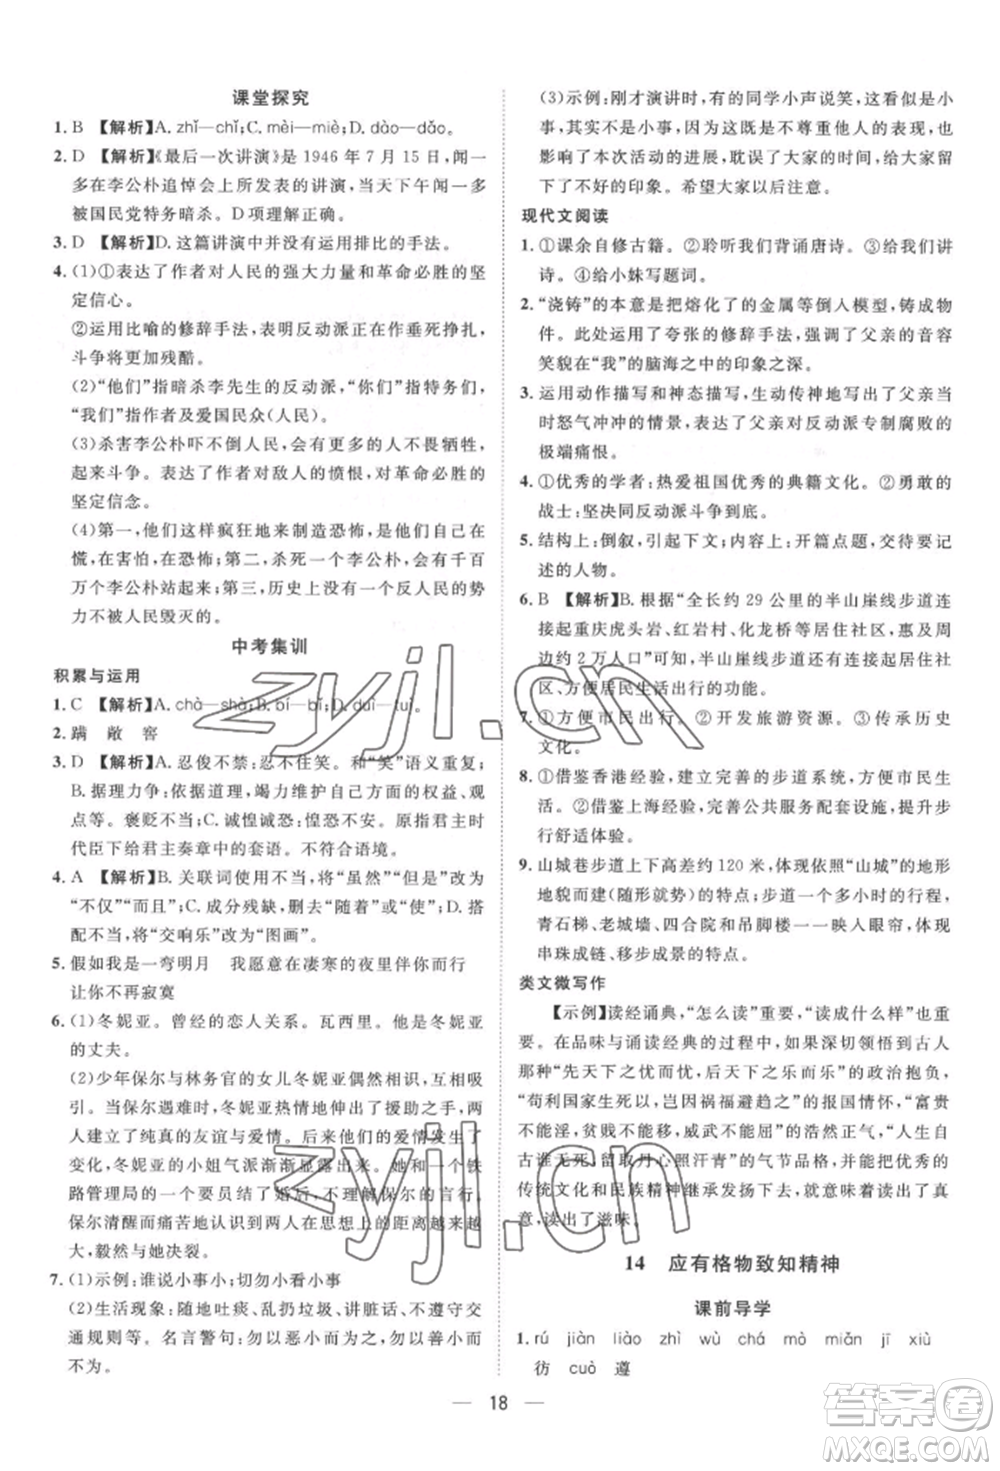 课堂探究
1. B 【解析】A. zhǐ—chǐ; C. mèi—miè; D. dào—dǎo。
2. D 【解析】《最后一次讲演》是 1946 年 7 月 15 日,闻一
多在李公朴追悼会上所发表的讲演,当天下午闻一多
被国民党特务暗杀。D 项理解正确。
3. D 【解析】D. 这篇讲演中并没有运用排比的手法。
4. (1)①表达了作者对人民的强大力量和革命必胜的坚
定信心。
②运用比喻的修辞手法,表明反动派在作垂死挣扎,
斗争将更加残酷。
(2)“他们”指暗杀李先生的反动派,“你们”指特务,
“我们”指作者及爱国民众(人民)。
(3)杀害李公朴吓不倒人民,他们会更加不畏牺牲,
起来斗争。表达了作者对敌人的愤恨,对革命必胜的
坚定信念。
(4)第一,他们这样疯狂地来制造恐怖,是他们自己在
慌,在害怕,在恐怖;第二,杀死一个李公朴,会有千百
万个李公朴站起来;第三,历史上没有一个反人民的势
力不被人民毁灭的。
中考集训
积累与运用
1. C 【解析】A. chà—shà; B. bí—bì; D. duī—tuí。
2. 蹒 敞 窖
3. D 【解析】A. 忍俊不禁:忍不住笑。和“笑”语义重复;
B. 据理力争:依据道理,竭力维护自己方面的权益、观
点等。褒贬不当;C. 诚惶诚恐:惶恐不安。原指君主时
代臣下给君主奏章中的套语。不符合语境。
4. A 【解析】B. 关联词使用不当,将“虽然”“但是”改为
“不仅”“而且”;C. 成分残缺,删去“随着”或“使”;D. 搭
配不当,将“交响乐”改为“图画”。
5. 假如我是一弯明月 我愿意在凄寒的夜里伴你而行
让你不再寂寞
6. (1)冬妮亚。曾经的恋人关系。瓦西里。他是冬妮亚
的丈夫。
(2)少年保尔与林务官的女儿冬妮亚偶然相识,互有好
感。当保尔遇难时,冬妮亚热情地伸出了援助之手,两
人建立了纯真的友谊与爱情。后来,革命爱情发生了
变化,冬妮亚的小姐气派渐渐显露出来。她和一个铁
路管理局局长的儿子结了婚后,不理解保尔的言行。
保尔清醒而痛苦地认识到两人在思想上的距离越来越
大,毅然与她决裂。
7. (1)示例:谁说小事小;切勿小看小事
(2)生活现象:随地吐痰、乱扔垃圾、讲脏话、不遵守交
通规则等。名言警句:勿以恶小而为之,勿以善小而
不为。
(3)示例:刚才演讲时,有的同学小声说笑,这看似是
小事,其实不是小事,因为这是不尊重他人的表现,也
影响了本次活动的进展,耽误了大家的时间,给大家留
下了不好的印象。希望大家以后注意。
现代文阅读
1. ①课余自修古籍。②聆听我们背诵唐诗。③给我们讲
诗。④给小妹写题词。
2. “浇铸”的本意是把熔化了的金属等倒人模型,铸成物
件。此处运用了夸张的修辞手法,强调了父亲的音容
笑貌在“我”的脑海之中的印象之深。
3. 运用动作描写和神态描写,生动传神地写出了父亲当
时怒气冲冲的情景,表达了父亲对反动派专制腐败的
极端痛恨。
4. ①优秀的学者:热爱祖国优秀的典籍文化。②勇敢的
战士:坚决同反动派斗争到底。
5. 结构上:倒叙,引起下文;内容上:开篇点题,交待要记
述的人物。
6. B 【解析】B. 根据“全长约 29 公里的半山崖线步道连
接起重庆虎头岩、红岩村、化龙桥等 7 个居住社区,惠
及周边约 2 万人口”可知,半山崖线步道连接起居住社
区,方便居民生活出行的功能。
7. ①方便市民出行。②开发旅游资源。③传承历史
文化。
8. ①借鉴香港经验,建立完善的步道系统,方便市民生
活。②借鉴上海经验,完善公共服务配套设施,提升步
行舒适体验。
9. 山城巷步道上下高差约 120 米,体现依照“山城”的地形
地貌而建(随形就势)的特点;步道一个多小时的行程,
青石梯、老城墙、四合院和吊脚楼一一映人眼帘,体现
串珠成链、移步成景的特点。
类文微写作
【示例】读经诵典,“怎么读”更重要,“读成什么样”更
要求。在品味与诵读经典的过程中,如果深切领悟到古人
“先天下之忧而忧,后天下之乐而乐”的政治抱负,
“苟利国家生死以,岂因祸福避趋之”的报国情怀,“富贵
不能淫,贫贱不能移,威武不能屈”的浩然正气,“人生自
古谁无死,留取丹心照汗青”的气节品格,并能把优秀的
传统文化和民族精神继承发扬下去,就意味着读出了真
意,读出了滋味。
14 应有格物致知精神
课前导学
1. rú jiàn liào zhì wù chá mò miǎn jī xiù
彷 cuò 遵
18
zyjl.cn
zyjl.cn
答案圈
MXQE.COM